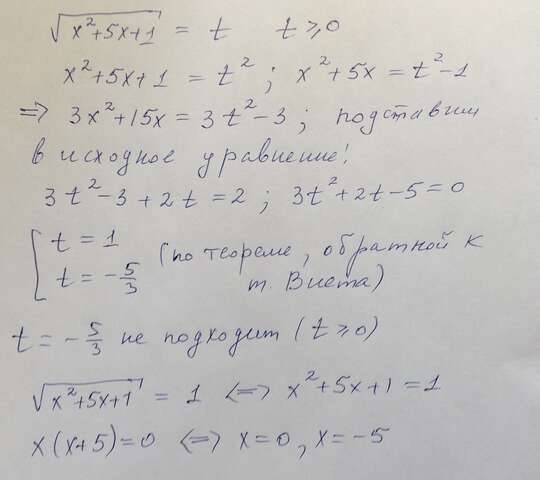 √(x²+5x+1) = t t ≥ 0
x²+5x+1 = t² ; x²+5x = t²-1
⇒ 3x²+15x = 3t²-3 ; подставим
в исходное уравнение!
3t²-3+2t=2 ; 3t²+2t-5=0
[ t = 1
t = -5/3 (по теореме, обратной к
т. Виета)
t = -5/3 не подходит (t ≥ 0)
√(x²+5x+1) = 1 <=> x²+5x+1=1
x(x+5)=0 <=> x=0, x=-5